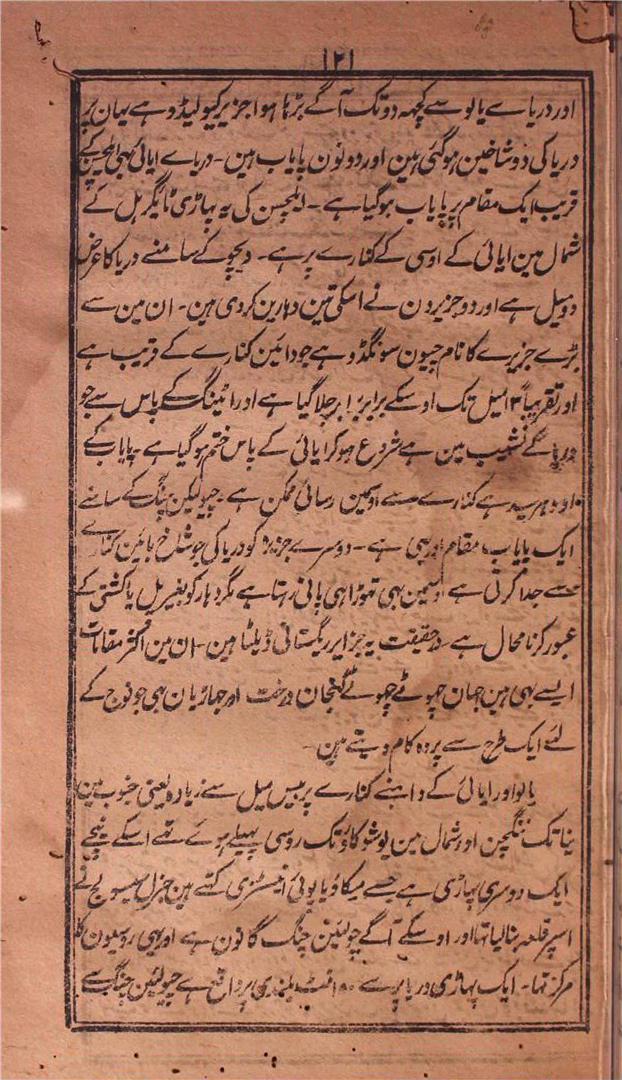 ۱۲۱
اور دریاے یالو سے کچہہ دو تک آگے بڑہا ہوا جزیر کیولیڈو ہے یہان پر
دریا کی دو شاخین ہوگئی ہین اور دونون پایاب ہین - دریاے ایائی بہی کے
قریب ایک مقام پر پایاب ہوگیا ہے - کی یہ پہاڑی ٹائیگر ہل کے
شمال مین ایائی کے اوسی کے کنارے پر ہے - کے سامنے دریا کا عرض
دو میل ہے اور دو جزیرون نے اسکی تین دہارین کردی ہین - ان مین سے
بڑے جزیرے کا نام سونگڈو ہے جو دائین کنارے کے قریب ہے
اور تقریباً میل تک اوسکے برابر برابر چلا گیا ہے اور کے پاس سے جو
دریا کے نشیب مین ہے شروع ہوکر ایائی کے پاس ختم ہوگیا ہے - پایاب کے
ہے کنارے سے اوسمین رسائی ممکن ہے - کے سامنے
ایک پایاب مقام اور بہی ہے - دوسرے جزیرہ کو دریا کی جو شاخ بائین کنارے
سے جدا کرتی ہے اوسمین بہی تہوڑا ہی پانی رہتا ہے مگر دہار کو بغیر پل یا کشتی کے
عبور کرنا محال ہے در حقیقت یہ جزایر ریگستانی ڈیلٹا ہین - ان مین اکثر مقامات
ایسے بہی ہین جہان چہوٹے چہوٹے گنجان درخت اور جہاڑیان ہین جو فوج کے
لئے ایک طرح سے پردہ کا کام دیتے ہین -
یالو اور ایائی کے داہنے کنارے پر بیس میل سے زیادہ یعنی جنوب مین
تک اور شمال مین تک روسی پہیلے ہوئے تہے اسکے نیچے
ایک دوسری پہاڑی ہے جسے کہتے ہین جنرل نے
اسپر قلعہ بنالیا تہا اور اوسکے آگے چولیئن چنگ گانون ہے اور یہی روسیون کا
مرکز تہا - ایک پہاڑی دریا پر سے فٹ بلندی پر واقع ہے چولیئن چنگ سے